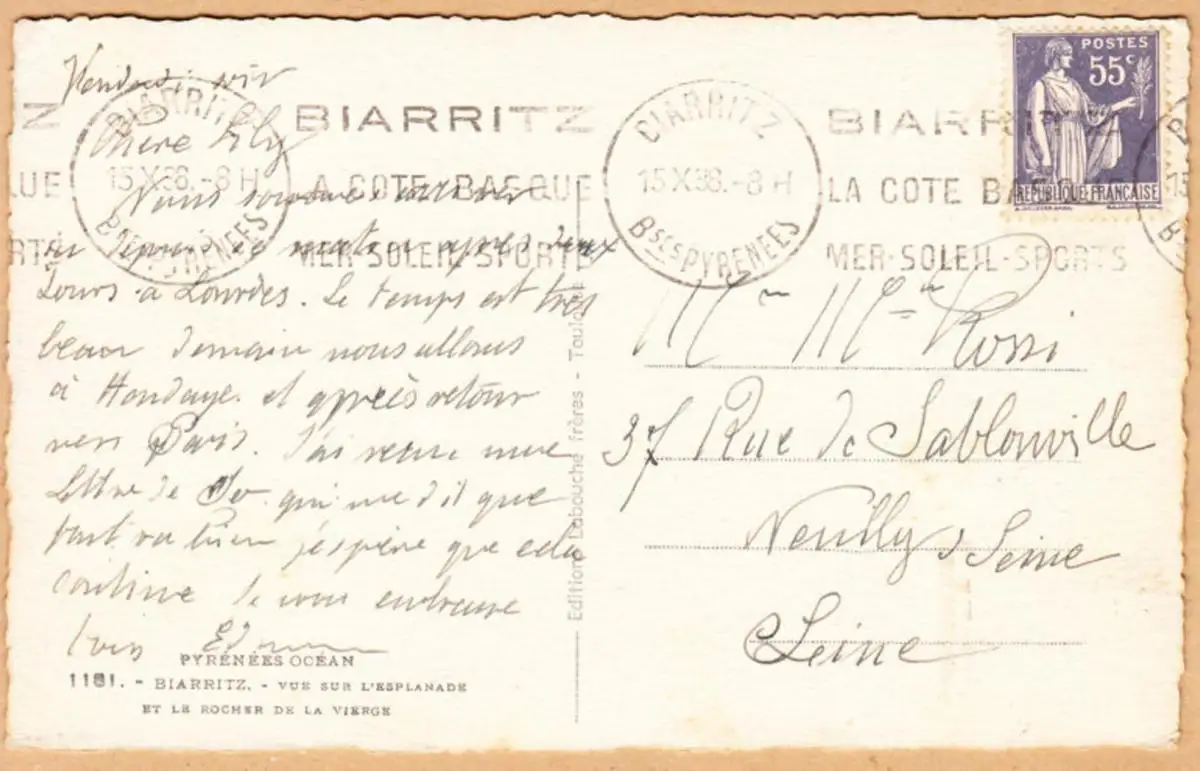 Vendredi soir
Chère Lily
Nous sommes arrivés
ici depuis ce matin après deux
Jours à Lourdes. Le temps est très
beau demain nous allons
à Hendaye et après retour
vers Paris. J'ai reçu une
lettre de qui me dit que
tout va bien j'espère que cela
continue Je vous embrasse
tous
PYRÉNÉES OCÉAN
1181. - BIARRITZ. - VUE SUR L'ESPLANADE
ET LE ROCHER DE LA VIERGE
Edition Labouche frères - Toulouse
BIARRITZ
15 X 38. - 8 H
Bses PYRENEES
BIARRITZ
LA COTE BASQUE
MER-SOLEIL-SPORTS
BIARRITZ
15 X 38. - 8 H
Bses PYRENEES
BIARRITZ
LA COTE BASQUE
MER-SOLEIL-SPORTS
POSTES
55c
REPUBLIQUE FRANÇAISE
Mr Mme Rossi
37 Rue de Sablonville
Neuilly s Seine
Seine